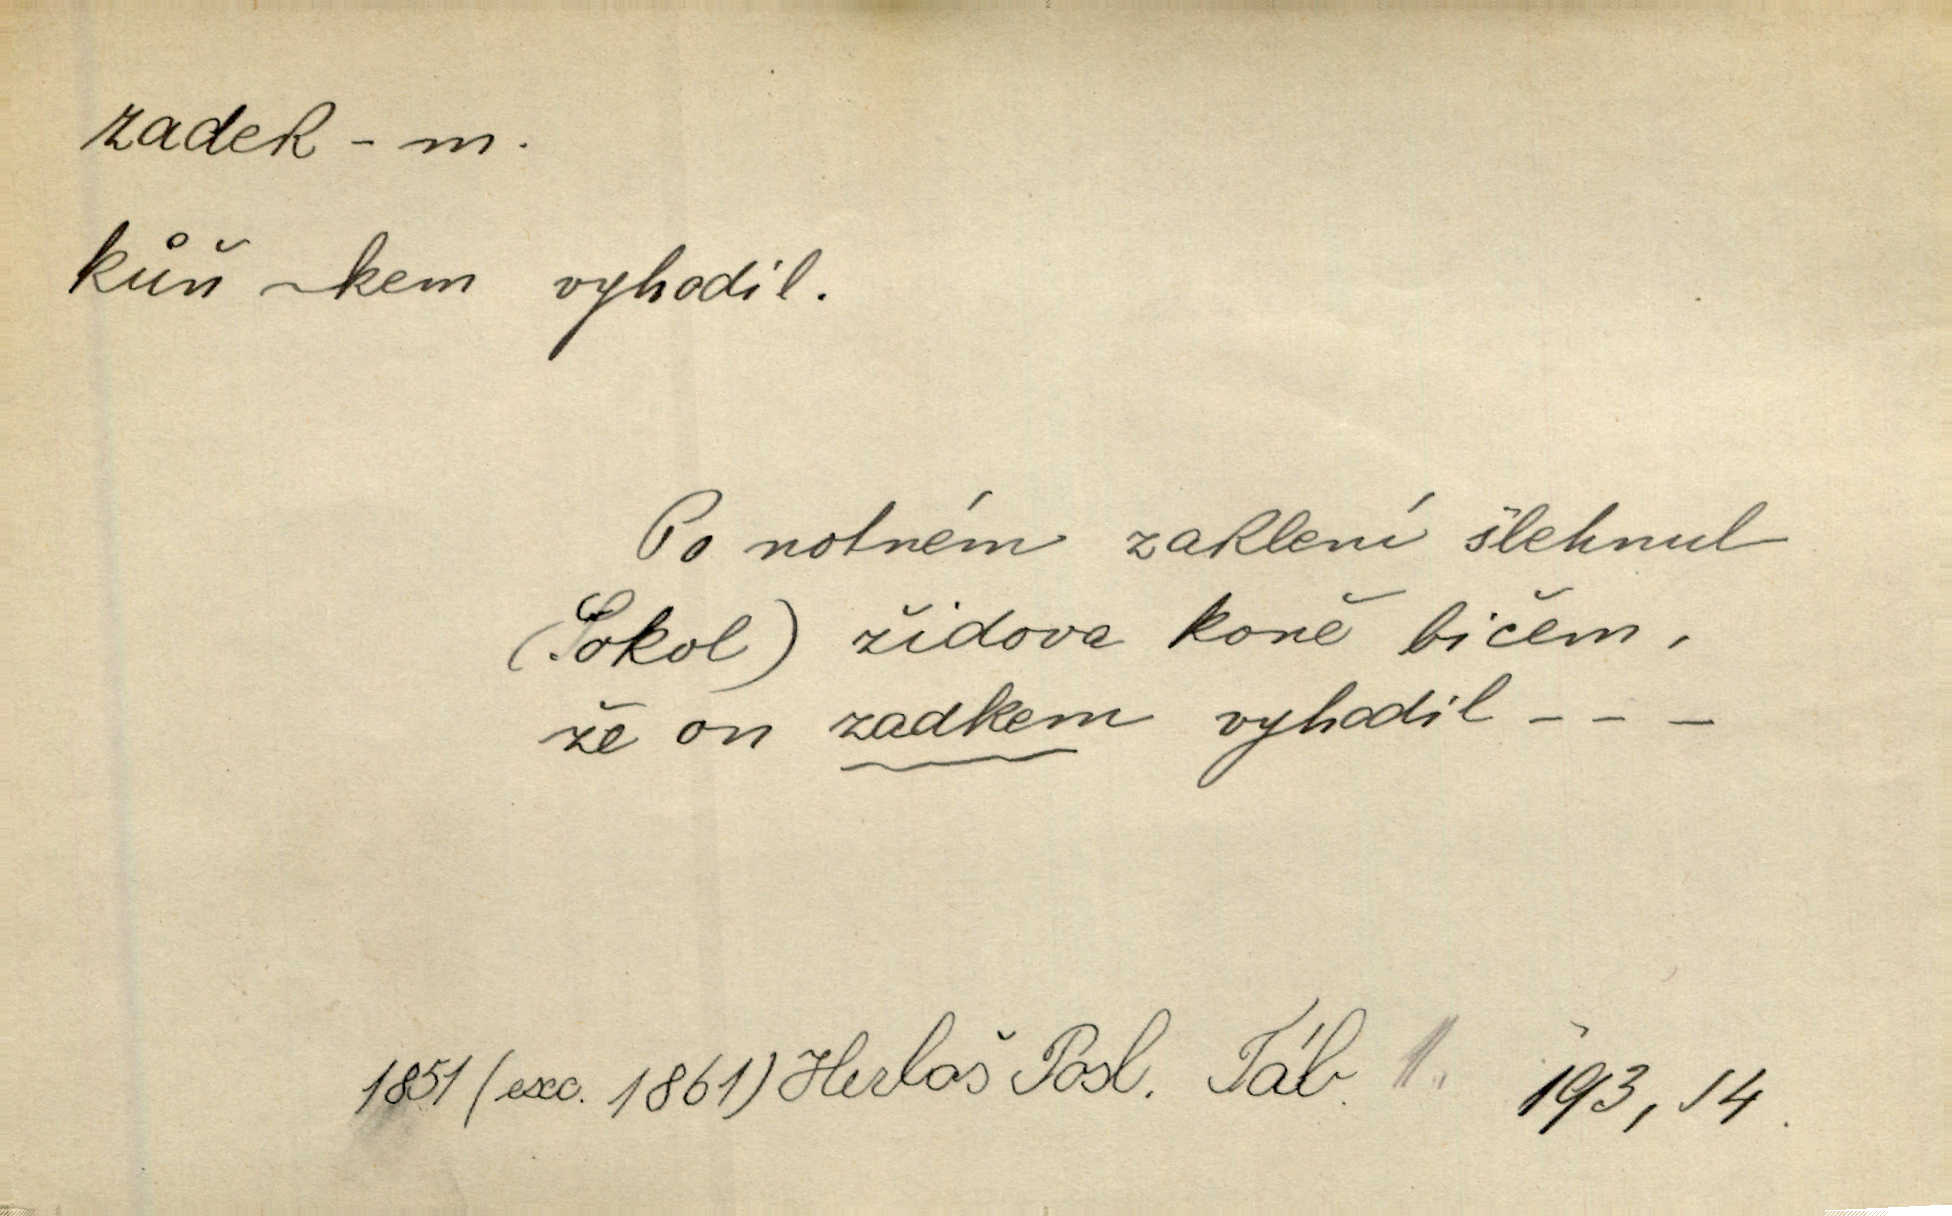 zadek - m.
kůň ~kem vyhodil.
Po notném zaklení šlehnul
(Sokol) židova koně bičem,
že on zadkem vyhodil - - -
1851 (exc. 1861) Herloš Posl. Táb. 1. 193, 14.